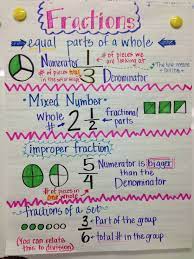 Fractions
equal parts of a whole
Numerator 1 # of pieces we are looking at
# of pieces total in the whole 3 Denominator
*The line means division*
Mixed Number
Whole # 2 1/2 fractional parts
improper fraction
5/4 Numerator is bigger than the Denominator
# of pieces in one whole
fractions of a set
3 → Part of the group
6 → total # in the group
(You can relate this to division)